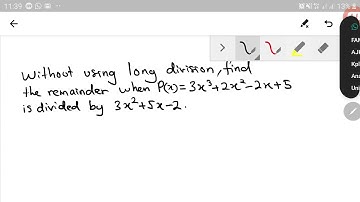 11:39
13%
FAN
AJU
Kpl
Ana
Uni
without using long division, find
the remainder when P(x)=3x³+2x²-2x+5
is divided by 3x²+5x-2.